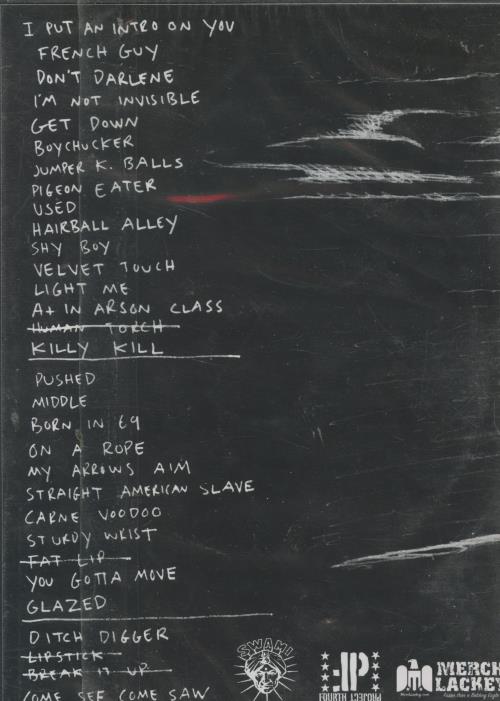 I PUT AN INTRO ON YOU
FRENCH GUY
DON'T DARLENE
I'M NOT INVISIBLE
GET DOWN
BOYCHUCKER
JUMPER K. BALLS
PIGEON EATER
USED
HAIRBALL ALLEY
SHY BOY
VELVET TOUCH
LIGHT ME
A+ IN ARSON CLASS
HUMAN TORCH
KILLY KILL
PUSHED
MIDDLE
BORN IN 69
ON A ROPE
MY ARROWS AIM
STRAIGHT AMERICAN SLAVE
CARNE VOODOO
STURDY WRIST
FAT LIP
YOU GOTTA MOVE
GLAZED
DITCH DIGGER
LIPSTICK
BREAK IT UP
COME SEE COME SAW
SWAMI
FOURTH PROJECT
MERCH
LACKEY